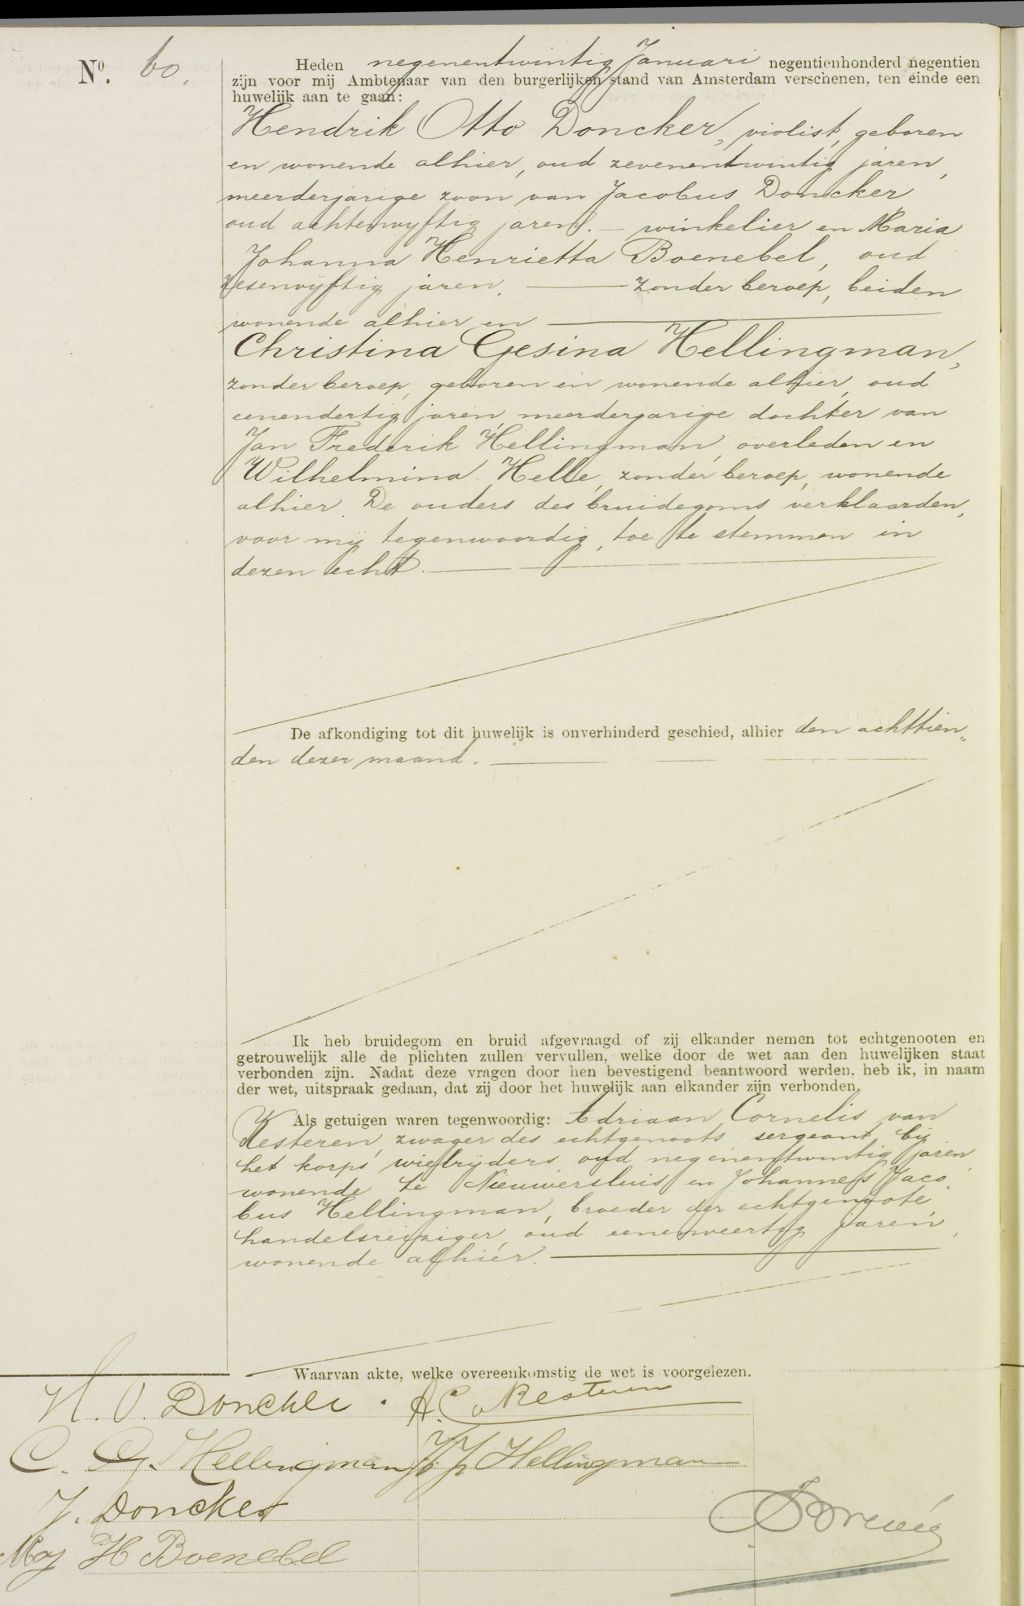 No. 60.
Heden negenentwintig Januari negentienhonderd negentien
zijn voor mij Ambtenaar van den burgerlijken stand van Amsterdam verschenen, ten einde een
huwelijk aan te gaan:
Hendrik Otto Doncker, violist, geboren
en wonende alhier, oud zevenentwintig jaren,
meerderjarige zoon van Jacobus Doncker
oud achtenvyftig jaren. — winkelier en Maria
Johanna Henrietta Boenebel, oud
zesenvyftig jaren, — zonder beroep, beiden
wonende alhier en —
Christina Gesina Hellingman,
zonder beroep, geboren en wonende alhier, oud
eenendertig jaren meerderjarige dochter van
Jan Frederik Hellingman, overleden en
Wilhelmina Helle, zonder beroep, wonende
alhier. De ouders des bruidegoms verklaarden,
voor mij tegenwoordig, toe te stemmen in
dezen echt. —
De afkondiging tot dit huwelijk is onverhinderd geschied, alhier den achttien„
den dezer maand. —
Ik heb bruidegom en bruid afgevraagd of zij elkander nemen tot echtgenooten en
getrouwelijk alle de plichten zullen vervullen, welke door de wet aan den huwelijken staat
verbonden zijn. Nadat deze vragen door hen bevestigend beantwoord werden, heb ik, in naam
der wet, uitspraak gedaan, dat zij door het huwelijk aan elkander zijn verbonden.
Als getuigen waren tegenwoordig: Adriaan Cornelis van
Kesteren, zwager des echtgenoots, sergeant bij
het korps wielryders, oud negenentwintig jaren
wonende te Nieuwersluis en Johannes Jaco„
bus Hellingman, broeder der echtgenoote,
handelsreiziger, oud eenenveertig jaren,
wonende alhier. —
Waarvan akte, welke overeenkomstig de wet is voorgelezen.
H. O. Doncker. A. C. v Kesteren
C. G. Hellingman J J Hellingman
J. Doncker
M H Boenebel